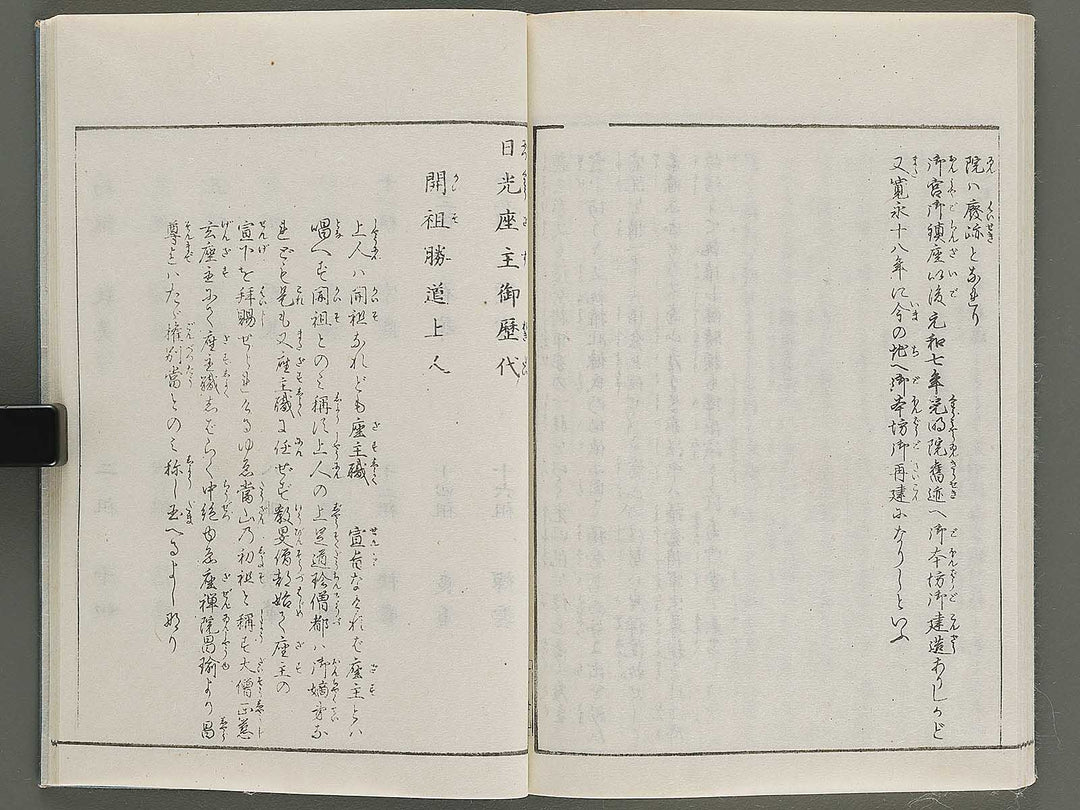 院ハ廢跡となれり
御宮御鎮座以後元和七年光明院舊迹へ御本坊御建造ありしかど
又寛永十八年に今の地へ御本坊御再建になりしといふ
日光座主御歴代
開祖勝道上人
上人ハ開祖なれども座主職 宣旨なけれど座主とハ
唱へず開祖とのミ称す上人の上足道珍僧都ハ御嫡弟な
れども是も又座主職に任せず教旻僧都始て座主の
宣下を拝賜せらるゆゑ當山乃初祖と稱す大僧正慈
玄座主にて座主職志ばらく中絶ゆゑ座禅院昌瑜より昌
尊迄ハたゞ権別當とのミ称し玉へるよし也